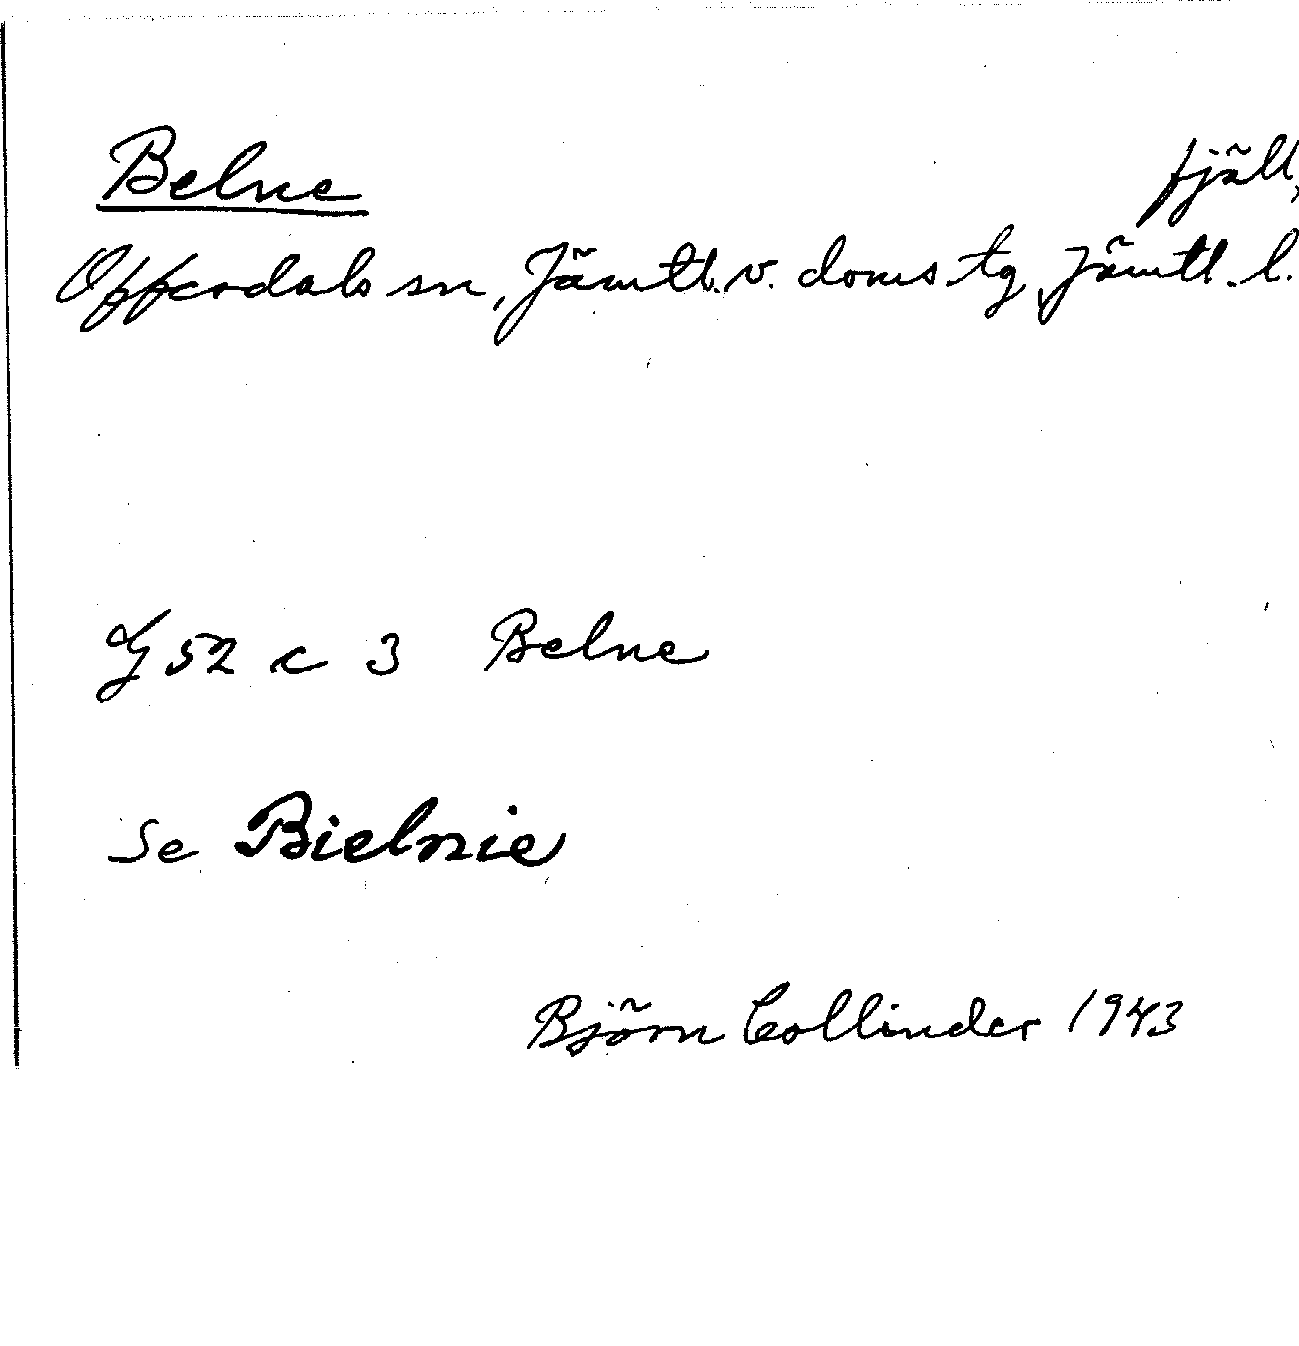 Belne fjäll,
Offerdals sn, Jämtl. v. doms tg, Jämtl. l.
G 52 c 3 Belne
Se Bielnie
Björn Collinder 1943